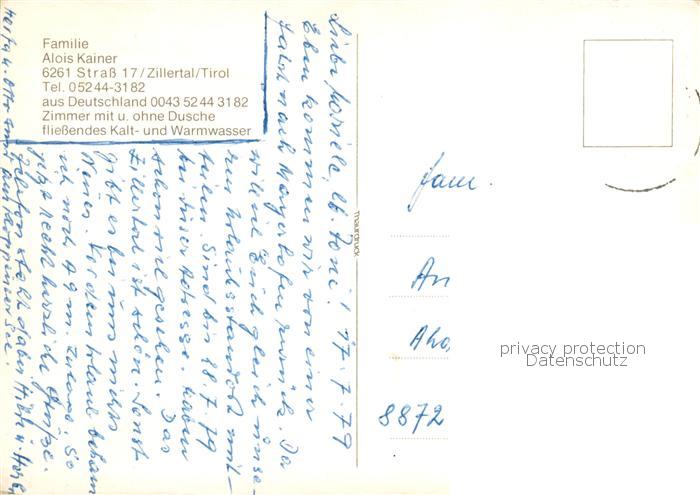 Familie
Alois Kainer
6261 Straß 17/Zillertal/Tirol
Tel. 05244-3182
aus Deutschland 0043 5244 3182
Zimmer mit u. ohne Dusche
fließendes Kalt- und Warmwasser
17.7.79
Eben kommen wir von einer
Fahrt nach Mayrhofen zurück. Da
will ich Euch gleich unse-
ren Urlaubsstandort mit-
teilen. Sind bis 28.7.79
an dieser Adresse. Haben
schon viel gesehen. Das
Zillertal ist schön. Sonst
gibt es bei uns nichts
Neues. Vor dem Urlaub bekam
ich noch So
jetzt recht herzliche Grüße.
Fam.
An
8872
privacy protection
Datenschutz